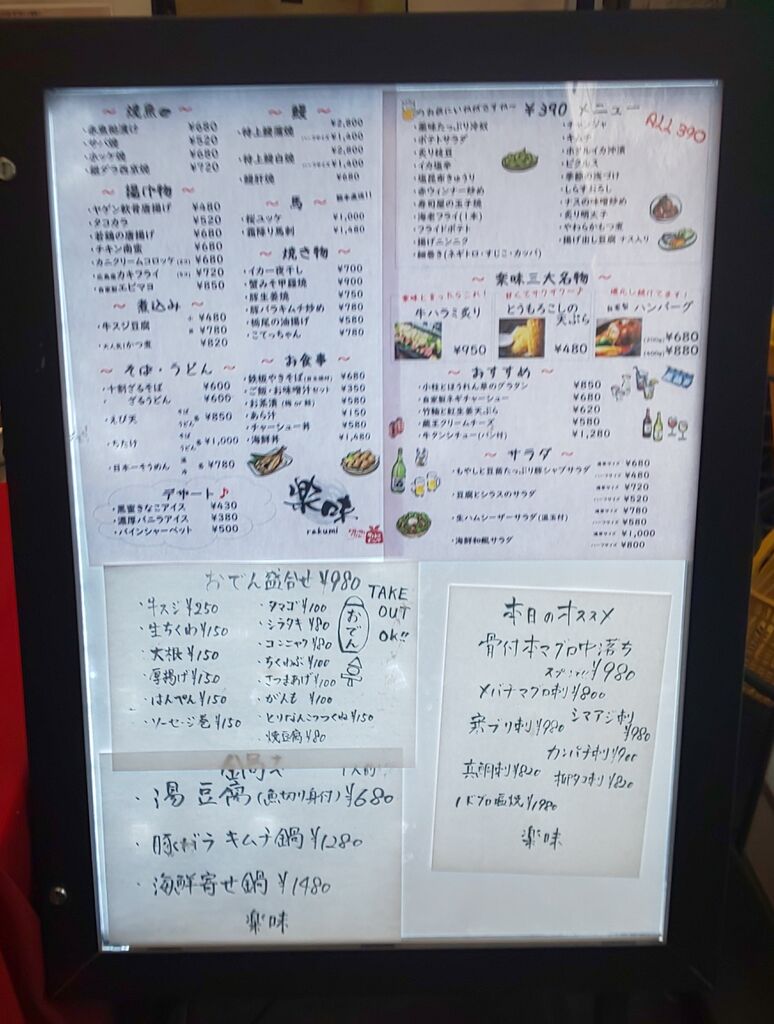 ～ 焼魚 ～
・赤魚粕漬け ¥680
・サバ焼 ¥520
・ホッケ焼 ¥680
・銀ダラ西京焼 ¥720
～ 揚げ物 ～
・ヤゲン軟骨唐揚げ ¥480
・タコカラ ¥520
・若鶏の唐揚げ ¥680
・チキン南蛮 ¥680
・カニクリームコロッケ ¥680
カキフライ ¥720
エビマヨ ¥850
～ 煮込み ～
・牛スジ豆腐 小 ¥480
¥780
かつ煮 ¥820
～ そば・うどん ～
・十割ざるそば ¥600
・ ざるうどん ¥600
・えび天 そば うどん ¥850
・ちたけ そば うどん ¥1,000
・日本一そうめん ¥780
デザート♪
・黒蜜きなこアイス ¥430
・濃厚バニラアイス ¥380
・パインシャーベット ¥500
～ 鰻 ～
・特上鰻蒲焼 ¥2,800
¥1,400
・特上鰻白焼 ¥2,800
¥1,400
・鰻肝焼 ¥680
～ 馬 ～
・桜ユッケ ¥1,000
・霜降り馬刺 ¥1,480
～ 焼き物 ～
・イカ一夜干し ¥700
・蟹みそ甲羅焼 ¥900
・豚生姜焼 ¥750
・豚バラキムチ炒め ¥780
・栃尾の油揚げ ¥580
・こてっちゃん ¥780
～ お食事 ～
・鉄板やきそば ¥680
・ご飯・お味噌汁セット ¥350
・お茶漬 (梅 or 鮭) ¥580
・あら汁 ¥150
・チャーシュー丼 ¥580
・海鮮丼 ¥1,480
楽味
rakumi
¥390 メニュー
ALL 390
・薬味たっぷり冷奴
・ポテトサラダ
・炙り枝豆
・イカ塩辛
・塩昆布きゅうり
・赤ウィンナー炒め
・寿司屋の玉子焼
・海老フライ(1本)
・フライドポテト
・揚げニンニク
・細巻き(ネギトロ・すじこ・カッパ)
・チャンジャ
・キムチ
・ホタルイカ沖漬
・ピクルス
・季節の浅づけ
・しらすおろし
・ナスの味噌炒め
・炙り明太子
・やわらかもつ煮
・揚げ出し豆腐 ナス入り
楽味三大名物
牛ハラミ炙り
¥950
とうもろこしの
天ぷら
¥480
自家製 ハンバーグ
(200g) ¥680
(400g) ¥880
～ おすすめ ～
・小柱とほうれん草のグラタン ¥850
・自家製ネギチャーシュー ¥680
・竹輪と紅生姜天ぷら ¥620
・蔵王クリームチーズ ¥580
・牛タンシチュー(パン付) ¥1,280
～ サラダ ～
・もやしと豆苗たっぷり豚シャブサラダ ¥680
ハーフサイズ ¥480
・豆腐とシラスのサラダ ¥720
ハーフサイズ ¥520
・生ハムシーザーサラダ(温玉付) ¥780
ハーフサイズ ¥580
・海鮮和風サラダ ¥1,000
ハーフサイズ ¥800
おでん盛合せ ¥980
・牛スジ ¥250
・生ちくわ ¥150
・大根 ¥150
・厚揚げ ¥150
・はんぺん ¥150
・ソーセージ巻 ¥150
・タマゴ ¥100
・シラタキ ¥80
・コンニャク ¥80
・ちくわぶ ¥100
・さつまあげ ¥100
・がんも ¥100
・とりなんこつつくね ¥150
・焼豆腐 ¥80
おでん
TAKE
OUT
OK!!
・湯豆腐(魚切り身付) ¥680
・豚バラキムチ鍋 ¥1280
・海鮮寄せ鍋 ¥1480
楽味
本日のオススメ
骨付本マグロ中落ち
¥980
メバチマグロ刺 ¥800
寒ブリ刺 ¥980
シマアジ刺
¥980
カンパチ刺 ¥900
真鯛刺 ¥820
柳タコ刺 ¥820
ノドグロ塩焼 ¥1980
楽味